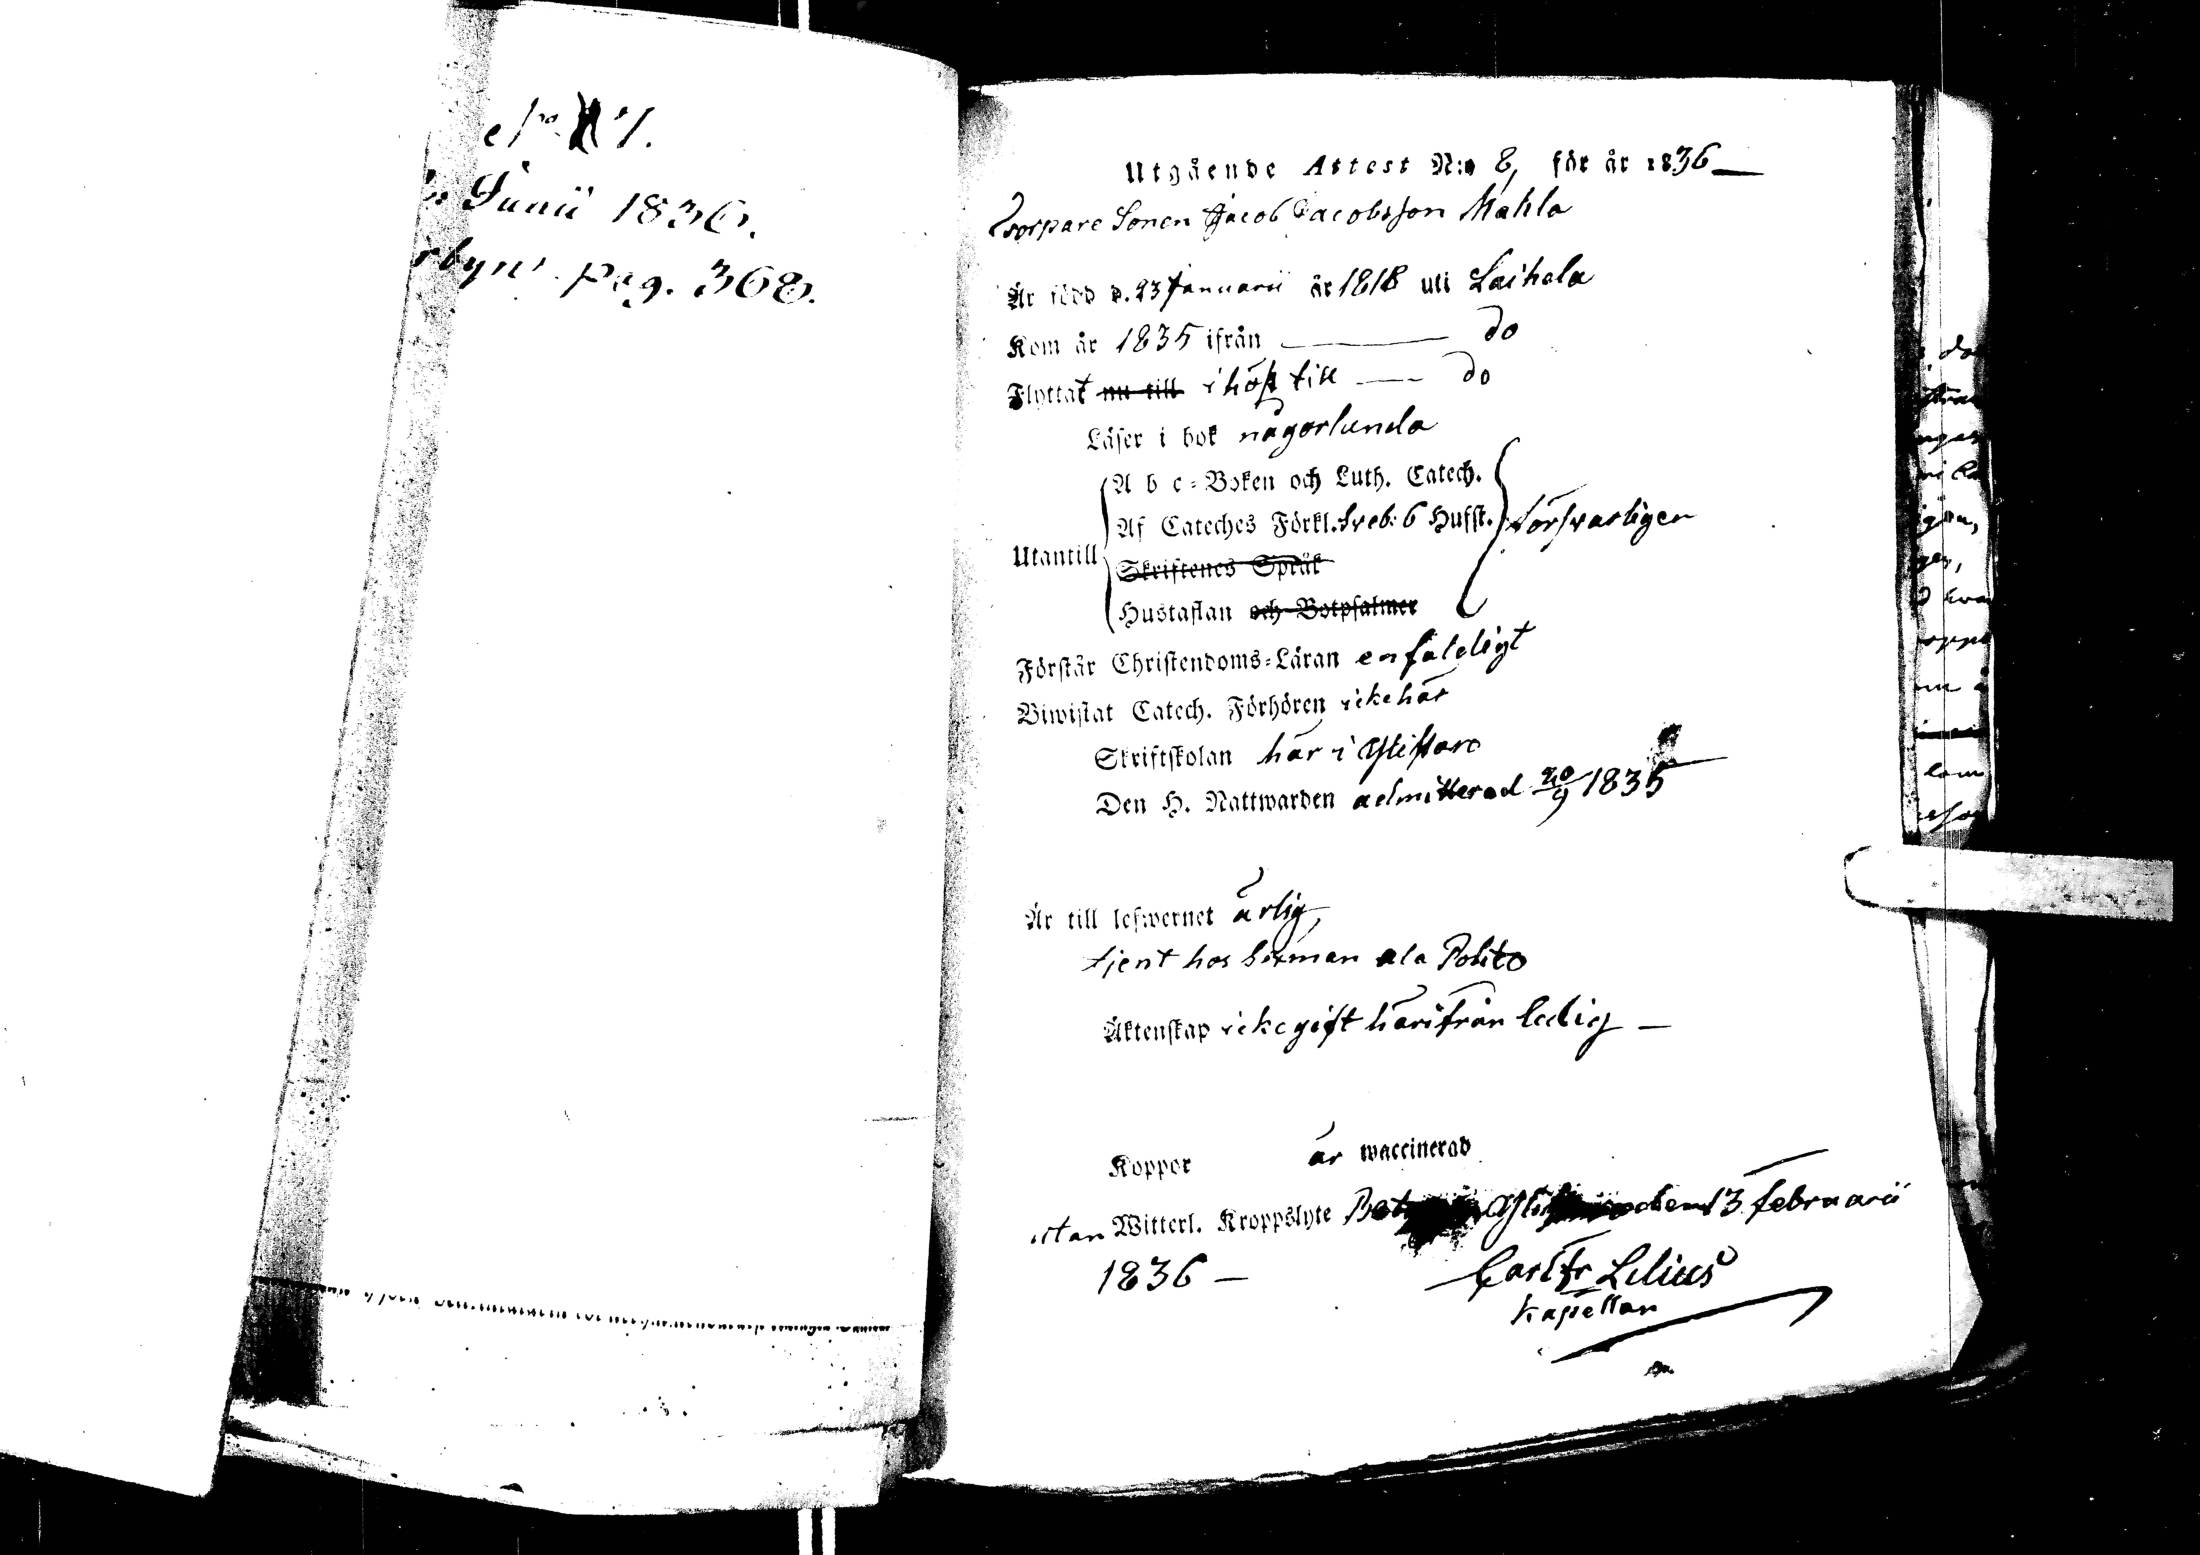 7.
Junii 1836.
byn pag. 368.
Utgående Attest N:o 8, för år 1836
Torpare Sonen Jacob Jacobsson Mahla
Är född d. 23 Januarii år 1818 uti Laihela
Kom år 1835 ifrån — do
Flyttat nu till i höst till — do
Läser i bok någorlunda
A b c-Boken och Luth. Catech.
Af Cateches Förkl. Sveb: 6 Hufst. försvarligen
Utantill
Skriftenes Språk
Hustaflan och Botpsalmer
Förstår Christendoms-Läran enfaldigt
Biwistat Catech. Förhören icke här
Skriftskolan här i Ylistaro
Den H. Nattwarden admitterad 20/9 1835
Är till lefwernet ärlig,
tjent hos Herman ala Polito
Äktenskap icke gift härifrån ledig —
Koppor är waccinerad
utan Witterl. Kroppslyte den 13 Februarii
1836 — Carl Fr Lilius
Kapellan